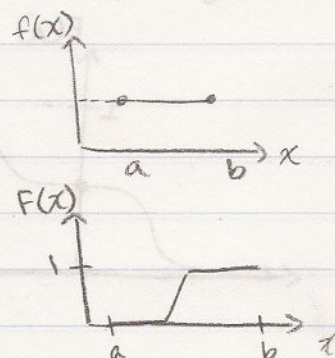 f(x)
a b x
F(x)
1
a b x